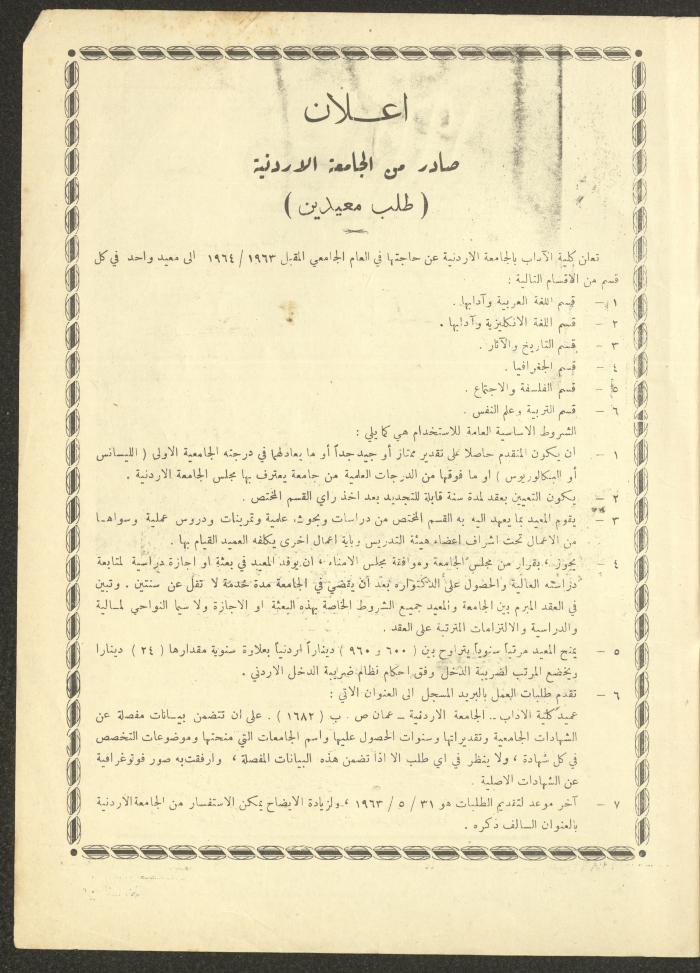 اعـــلان
صادر من الجامعة الاردنية
( طلب معيدين )
تعلن كلية الآداب بالجامعة الاردنية عن حاجتها في العام الجامعي المقبل ١٩٦٣ / ١٩٦٤ الى معيد واحد في كل
قسم من الاقسام التالية :
١ – قسم اللغة العربية وآدابها .
٢ – قسم اللغة الانكليزية وآدابها .
٣ – قسم التاريخ والآثار .
٤ – قسم الجغرافيا .
٥ – قسم الفلسفة والاجتماع .
٦ – قسم التربية وعلم النفس .
الشروط الاساسية العامة للاستخدام هي كما يلي :
١ – ان يكون المتقدم حاصلا على تقدير ممتاز أو جيد جداً أو ما يعادلهما في درجته الجامعية الاولى ( الليسانس
أو البكالوريوس ) او ما فوقها من الدرجات العلمية من جامعة يعترف بها مجلس الجامعة الاردنية .
٢ – يكون التعيين بعقد لمدة سنة قابلة للتجديد بعد اخذ راي القسم المختص .
٣ – يقوم المعيد بما يعهد اليه به القسم المختص من دراسات وبحوث علمية وتمرينات ودروس عملية وسواهـا
من الاعمال تحت اشراف اعضاء هيئة التدريس وباية اعمال اخرى يكلفه العميد القيام بها .
٤ – يجوز ، بقرار من مجلس الجامعة وموافقة مجلس الامناء ، ان يوفد المعيد في بعثة او اجازة دراسية لمتابعة
دراسته العالية والحصول على الدكتوراه بعد أن يقضي في الجامعة مدة خدمة لا تقل عن سنتين . وتبين
في العقد المبرم بين الجامعة والمعيد جميع الشروط الخاصة بهذه البعثة او الاجازة ولا سيما النواحي لمـالية
والدراسية والالتزامات المترتبة على العقد .
٥ – يمنح المعيد مرتباً سنوياً يتراوح بين ( ٦٠٠ و ٩٦٠ ) ديناراً اردنياً بعلاوة سنوية مقدارها ( ٢٤ ) دينارا
ويخضع المرتب لضريبة الدخل وفق احكام نظام ضريبة الدخل الاردني .
٦ – تقدم طلبات العمل بالبريد المسجل الى العنوان الاتي :
عميد كلية الاداب – الجامعة الاردنية – عمان ص . ب ( ١٦٨٢ ) . على ان تتضمن بيـانات مفصلة عن
الشهادات الجامعية وتقديراتها وسنوات الحصول عليها واسم الجامعات التي منحتها وموضوعات التخصص
في كل شهادة ، ولا ينظر في اي طلب الا اذا تضمن هذه البيانات المفصلة ، وارفقت به صور فوتوغرافية
عن الشهادات الاصلية .
٧ – آخر موعد لتقديم الطلبات هو ٣١ / ٥ / ١٩٦٣ ، ولزيادة الايضاح يمكن الاستفسار من الجامعة الاردنية
بالعنوان السالف ذكره .